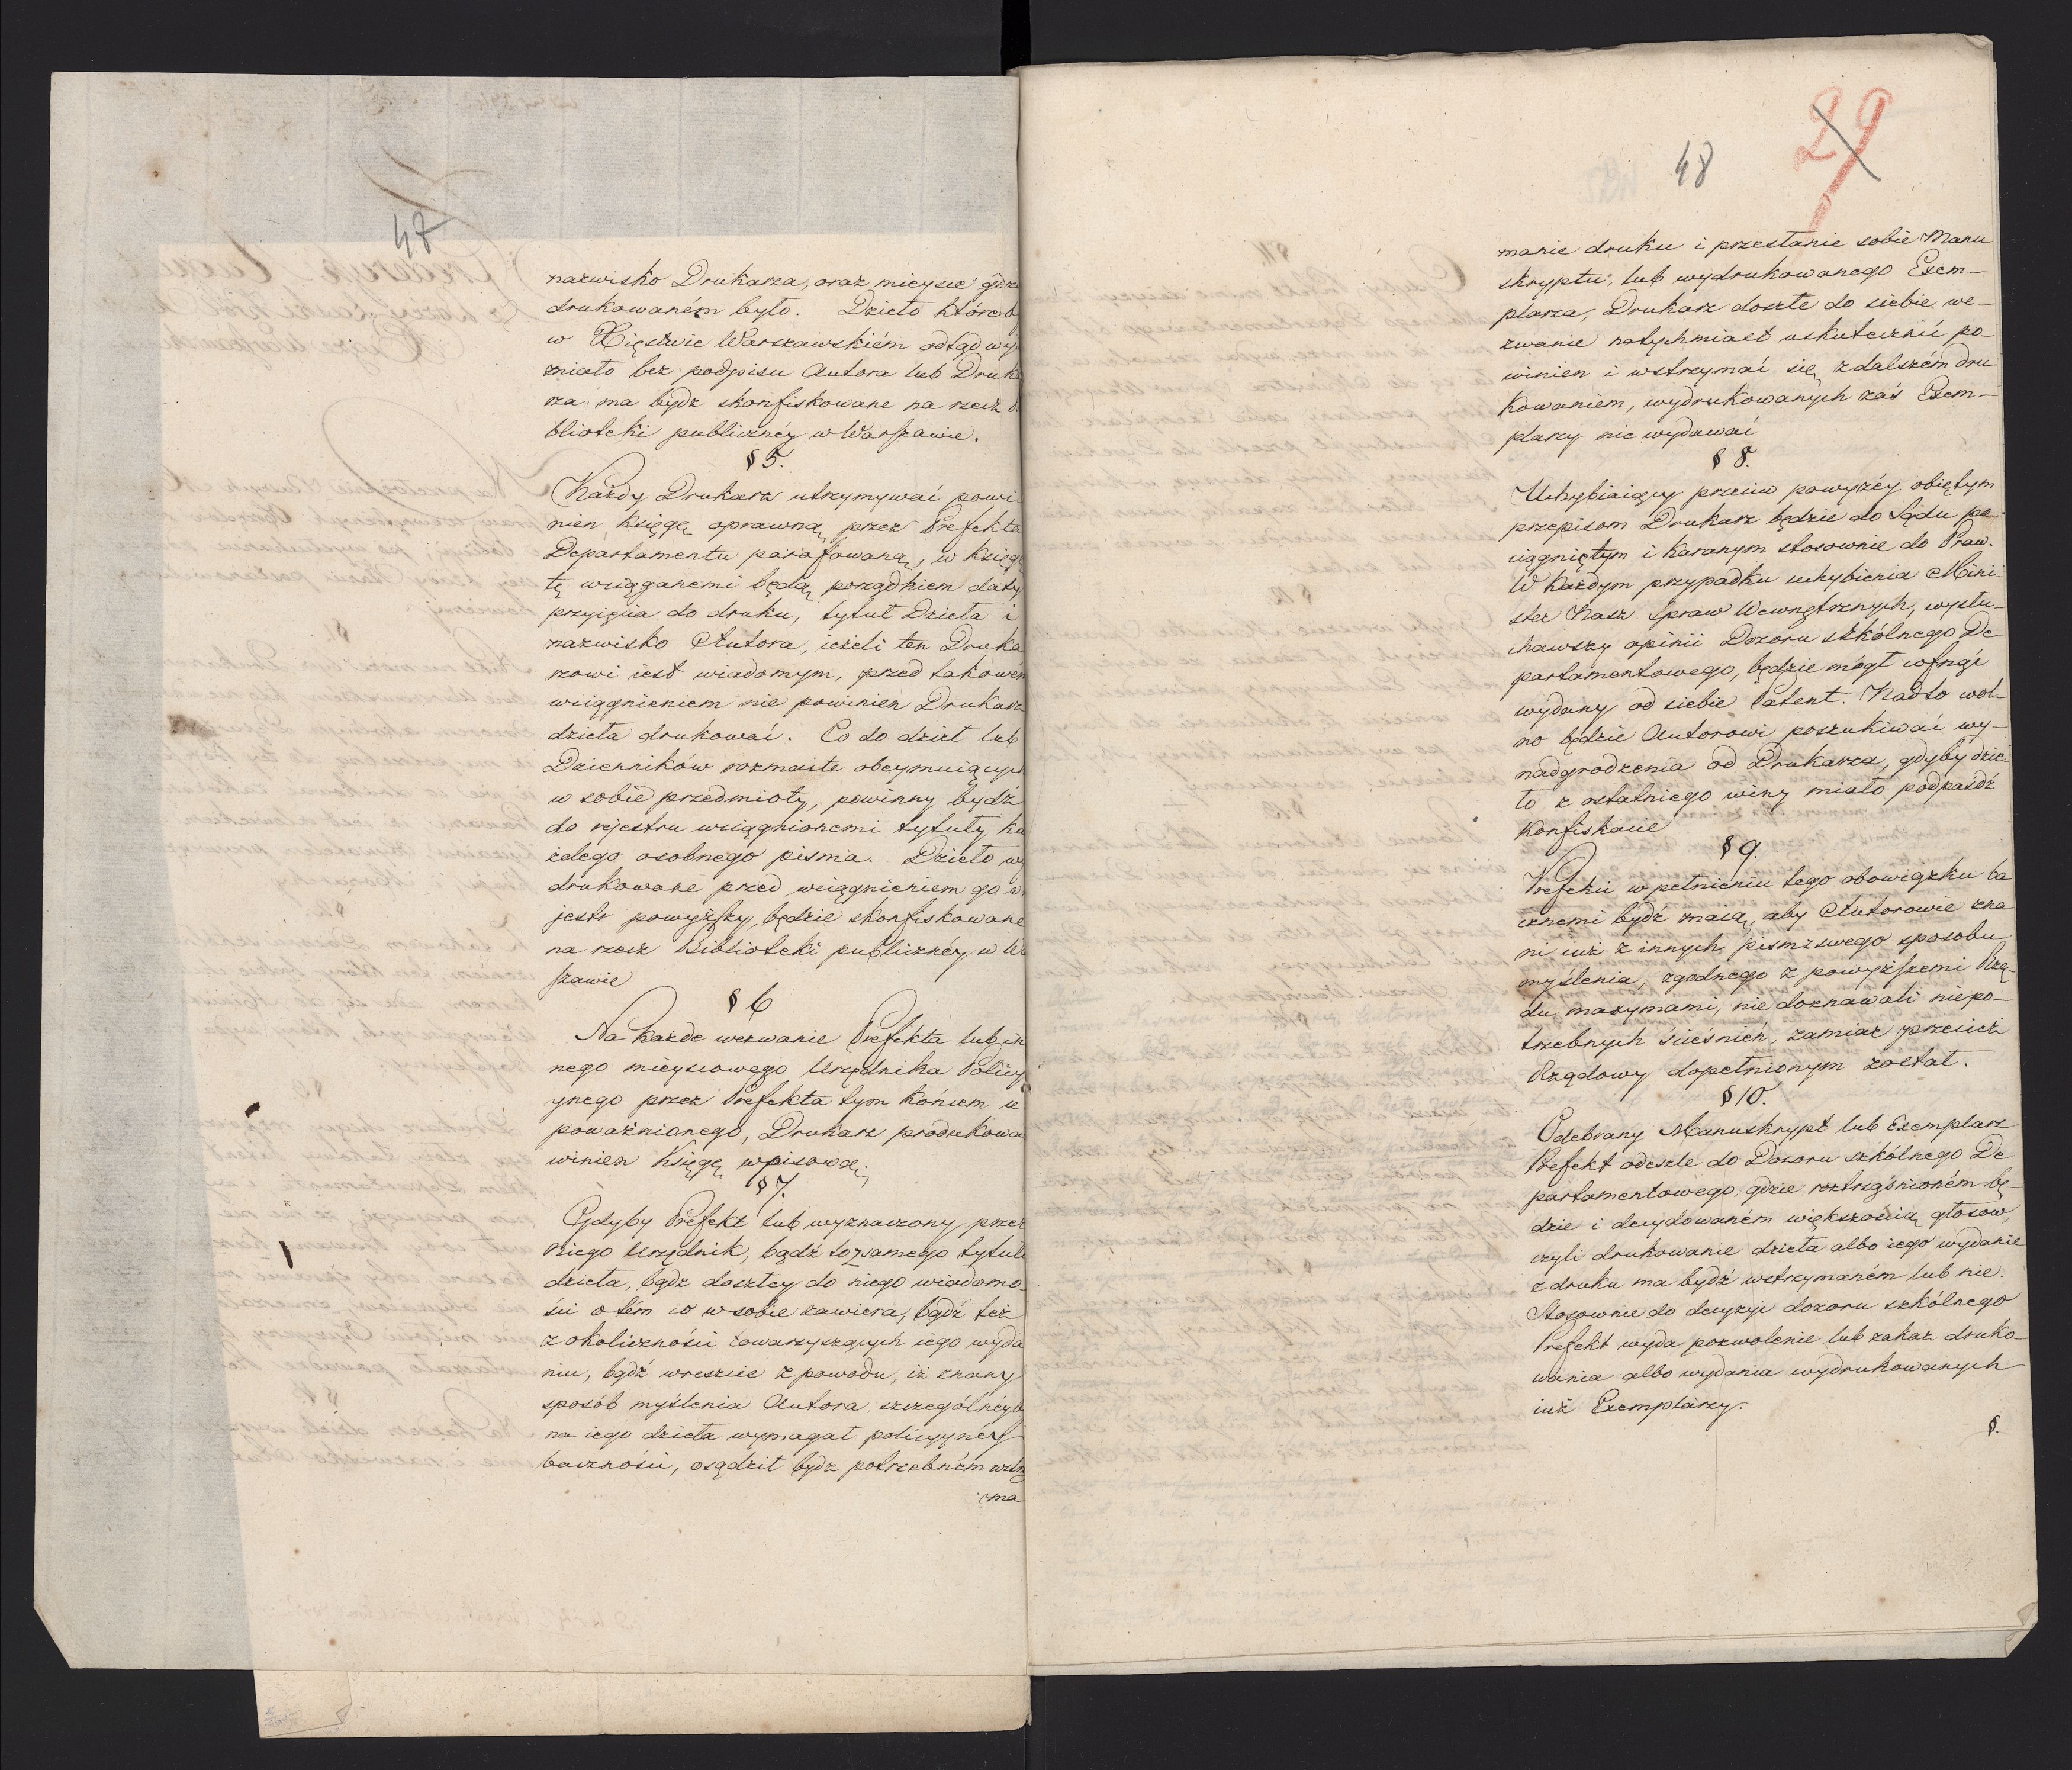 47
nazwisko Drukarza, oraz mieysce gdzie
drukowaném było. Dzieło które b
w Xięstwie Warszawskiém odtąd wy
miało bez podpisu Autora lub Druka
rza ma bydz skonfiskowane na rzecz
bliotcki publicznéy w Warszawie.
§ 5.
Każdy Drukarz utrzymywać powi
nien księgę oprawną, przez Prefekta
Departamentu parafowaną, w księgę
tę wciąganemi będą, porządkiem daty
przyięcia do druku, tytuł Dzieła i
nazwisko Autora, ieżeli ten Druka
rzowi iest wiadomym, przed takowém
wciągnieniem nie powinien Drukarz
dzieła drukować. Co do dzieł lub
Dzienników rozmaite obeymuiących
w sobie przedmioty, powinny bydź
do rejestru wciągnionemi tytuły ka
żdego osobnego pisma. Dzieło wy
drukowane przed wciągnieniem go w
jestr powyższy, będzie skonfiskowane
na rzecz Biblioteki publicznéy w W
szawie
§ 6
Na każde wezwanie Prefekta lub in
nego mieyscowego Urzędnika Policy
ynego przez Prefekta tym końcem u
poważnionego, Drukarz produkowa
winien Księgę wpisową.
§ 7.
Gdyby Prefekt lub wyznaczony przez
niego Urzędnik, bądź tozsamego tytułu
dzieła, bądz doszłey do niego wiadomo
ści o tém co w sobie zawiera, bądź też
z okoliczności towarzyszących iego wyda
niu, bądź wreszcie z powodu, iż znany
sposób myślenia Autora, szczególnéy
na iego dzieła wymagał policyynéy
baczności, osądził bydz potrzebném wstrzy
ma
48
29
manie druku i przesłanie sobie Manu
skryptu, lub wydrukowanego Exem-
plarza, Drukarz doszłe do siebie we-
zwanie natychmiast uskutecznić po-
winien i wstrzymać się z dalszém dru
kowaniem, wydrukowanych zaś Exem-
plarzy nie wydawać
§ 8.
Uchybiaiący przeciw powyżéy obiętym
przepisom Drukarz będzie do Sądu po-
ciągniętym i karanym stosownie do Praw.
W każdym przypadku uchybienia Mini-
ster Nasz Spraw Wewnętrznych, wysłu-
chawszy opinii Dozoru szkólnego De
partamentowego, będzie mógł cofnąć
wydany od siebie Patent. Nadto wol-
no będzie Autorowi poszukiwać wy-
nadgrodzenia od Drukarza, gdyby dzie-
ło z ostatniego winy miało podpaśdź
Konfiskacie
§ 9.
Prefekci w pełnieniu tego obowiązku ba
cznemi bydź maią, aby Autorowie zna
ni iuż z innych pism z swego sposobu
myślenia, zgodnego z powyższemi Rzą-
du maxymami, nie doznawali niepo-
trzebnych ścieśnień, zamiar przecież
Rządowy dopełnionym został.
§ 10.
Odebrany Manuskrypt lub Exemplarz
Prefekt odeszle do Dozoru szkólnego De
partamentowego, gdzie roztrząśnioném bę-
dzie i decydowaném większością głosow,
czyli drukowanie dzieła albo iego wydanie
z druku ma bydź wstrzymaném lub nie.
Stosownie do decyzyi dozoru szkólnego
Prefekt wyda pozwolenie lub zakaz druko-
wania albo wydania wydrukowanych
iuż Exemplarzy.
§.